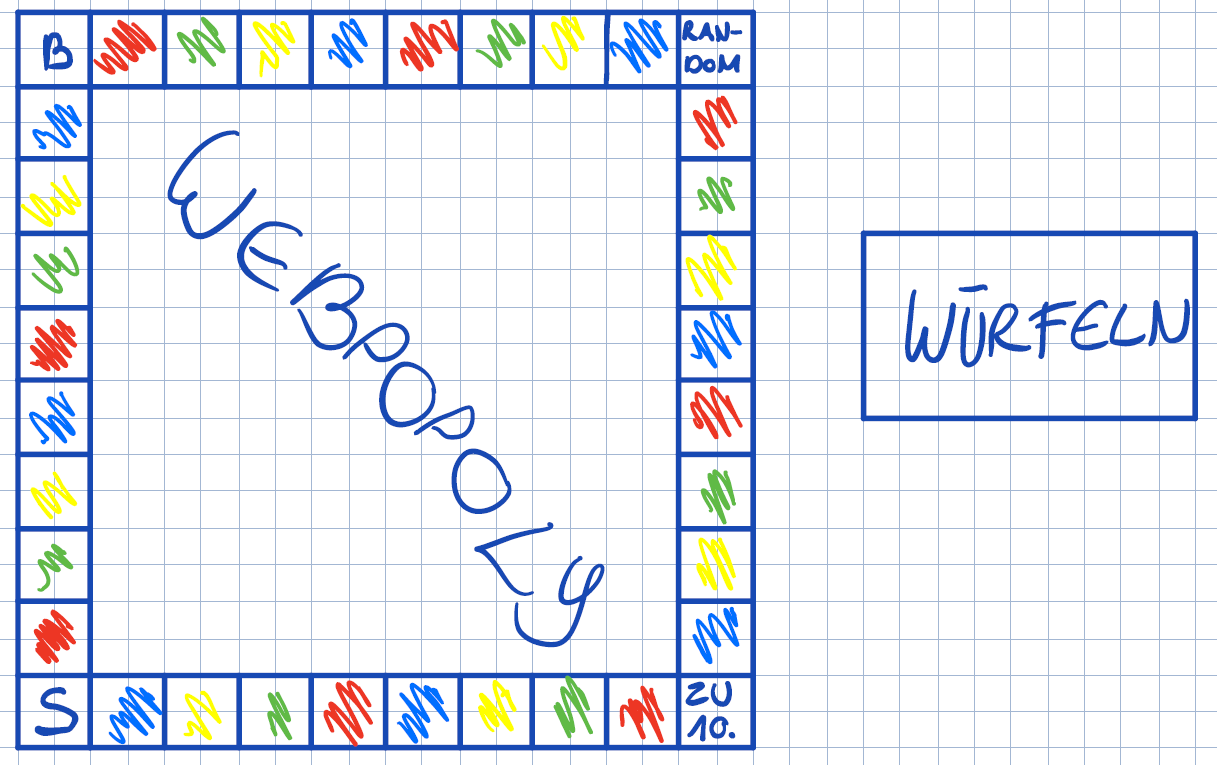 B
RAN-
DOM
WEBPOPOLY
WÜRFELN
S
ZU
10.